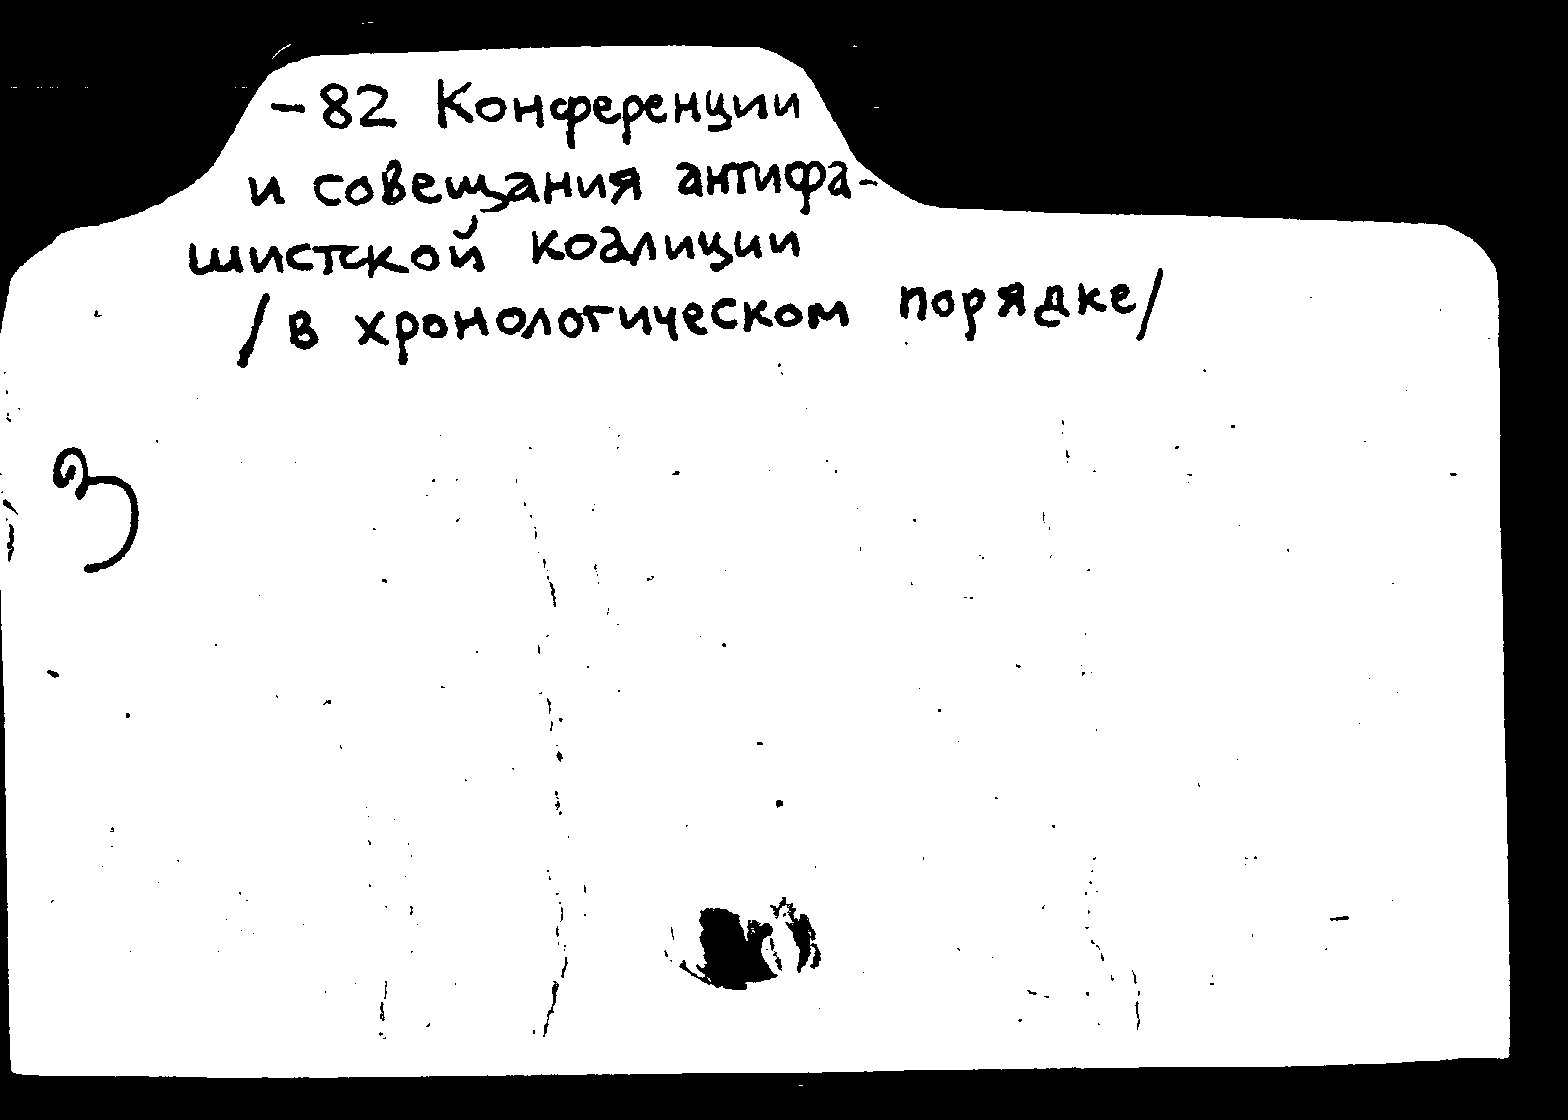 -82 Конференции
и совещания антифа-
шистской коалиции
/в хронологическом порядке/
3